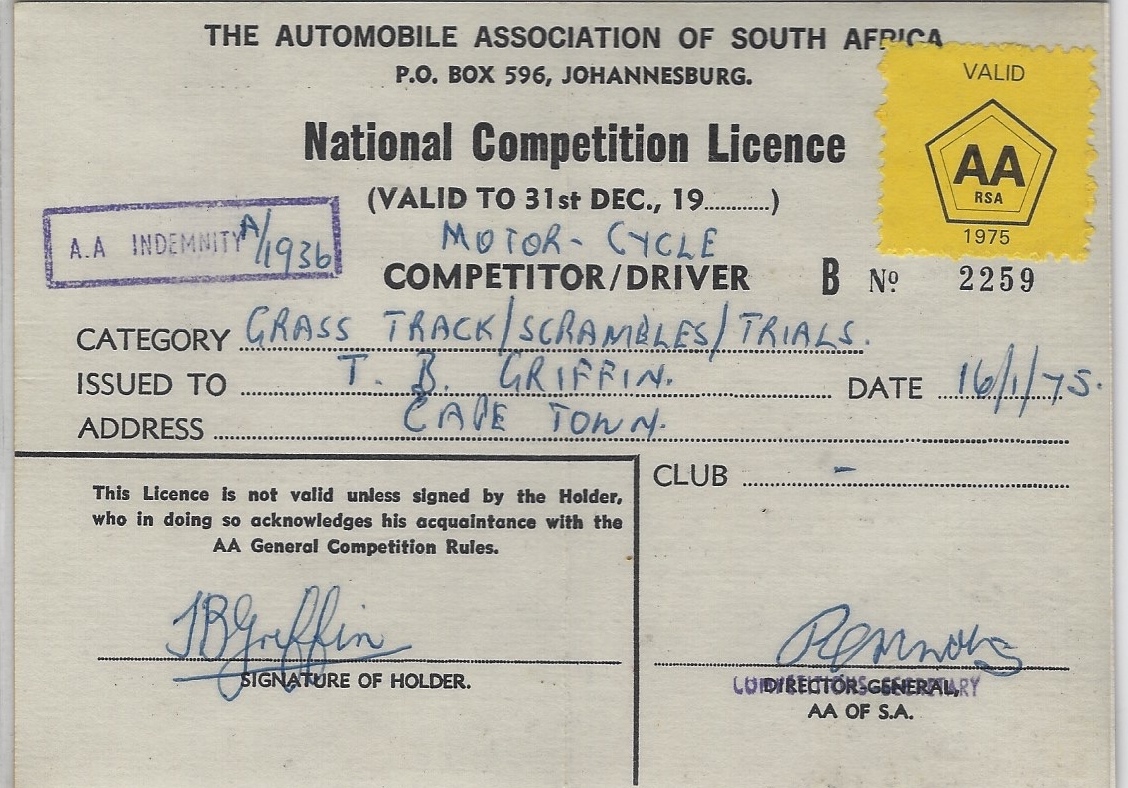 THE AUTOMOBILE ASSOCIATION OF SOUTH AFRICA
P.O. BOX 596, JOHANNESBURG.
VALID
AA
RSA
1975
National Competition Licence
(VALID TO 31st DEC., 19............)
A.A INDEMNITY A/1936
MOTOR-CYCLE
COMPETITOR/DRIVER B No 2259
CATEGORY GRASS TRACK/SCRAMBLES/TRIALS.
ISSUED TO T. B. GRIFFIN. DATE 16/1/75.
ADDRESS CAPE TOWN.
CLUB -
This Licence is not valid unless signed by the Holder,
who in doing so acknowledges his acquaintance with the
AA General Competition Rules.
TBGriffin
SIGNATURE OF HOLDER.
COMPETITIONS SECRETARY
DIRECTOR-GENERAL,
AA OF S.A.